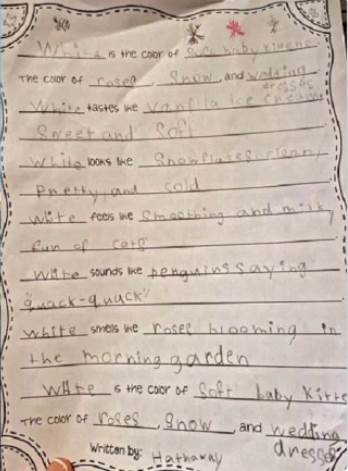 White is the color of Soft baby kittens.
The color of roses, Snow, and wedding
dresses
White tastes like Vanilla ice cream
Sweet and Soft
White looks like Snowflakes, clean,
Pretty, and cold
White feels like Smoothing and milky
full of care
White sounds like penguins saying
"quack-quack"
White smells like roses blooming in
the morning garden
White is the color of Soft baby Kitte
The color of roses, Snow, and wedding
dresses
Written by: Hathaway